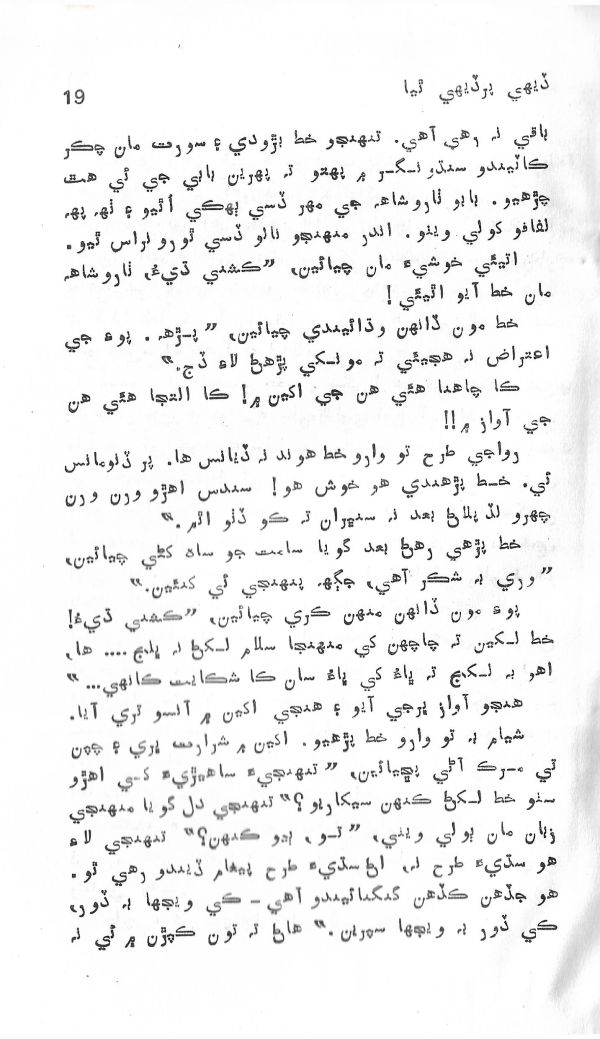 ڏيهي پرڏيهي ٿيا
19
باقي نہ رهي آهي. تنهنجو خط بڙودي ۽ سورت مان چڪر
ڪاٽيندو سنڌونگر ۾ پهتو تہ پهرين بابي جي ئي هٿ
چڙهيو. بابو ناروشاهہ جي مهر ڏسي ٻهڪي اُٿيو ۽ ٺهہ پهہ
لفافو کولي ويٺو. اندر منهنجو نالو ڏسي ٿورو نراس ٿيو.
اتيئي خوشيءَ مان چيائين، ”ڪشني ڌيءُ، ناروشاهہ
مان خط آيو اٿيئي!
خط مون ڏانهن وڌائيندي چيائين، ”پڙهہ. پوءِ جي
اعتراض نہ هجيئي تہ مونکي پڙهڻ لاءِ ڏج.“
ڪا چاهنا هئي هن جي اکين ۾! ڪا التجا هئي هن
جي آواز ۾!!
رواجي طرح تو وارو خط هوند نہ ڏيانس ها. پر ڏنومانس
ئي. خط پڙهندي هو خوش هو! سندس اهڙو ورن ورن
چهرو لڏپلاڻ بعد نہ سنڀران تہ ڪو ڏٺو اٿم.“
خط پڙهي رهڻ بعد گويا ساعت جو ساهہ کڻي چيائين،
”وري بہ شڪر آهي، جڳهہ پنهنجي ئي کنئين.“
پوءِ مون ڏانهن منهن ڪري چيائين، ”ڪشني ڌيءُ!
خط لکين تہ چاچهن کي منهنجا سلام لکڻ نہ ڀلج .... ها،
اهو بہ لکج تہ ڀاءُ کي ڀاءُ سان ڪا شڪايت ڪانهي...“
هنجو آواز ڀرجي آيو ۽ هنجي اکين ۾ آنسو تري آيا.
شيام بہ تو وارو خط پڙهيو. اکين ۾ شرارت ڀري ۽ چپن
تي مرڪ آڻي پڇيائين، ”تنهنجيءَ ساهيڙيءَ کي اهڙو
سٺو خط لکڻ ڪنهن سيکاريو؟“ تنهنجي دل گويا منهنجي
زبان مان ٻولي ويٺي، ”تو، ٻيو ڪنهن؟“ تنهنجي لاءِ
هو سڌيءَ طرح نہ، اڻ سڌيءَ طرح پيغام ڏيندو رهي ٿو.
هو جڏهن ڪڏهن گنگنائيندو آهي – ڪي ويجها بہ ڏور،
ڪي ڏور بہ ويجها سپرين.“ هاڻ تہ تون ڪپڙن ۾ ئي نہ